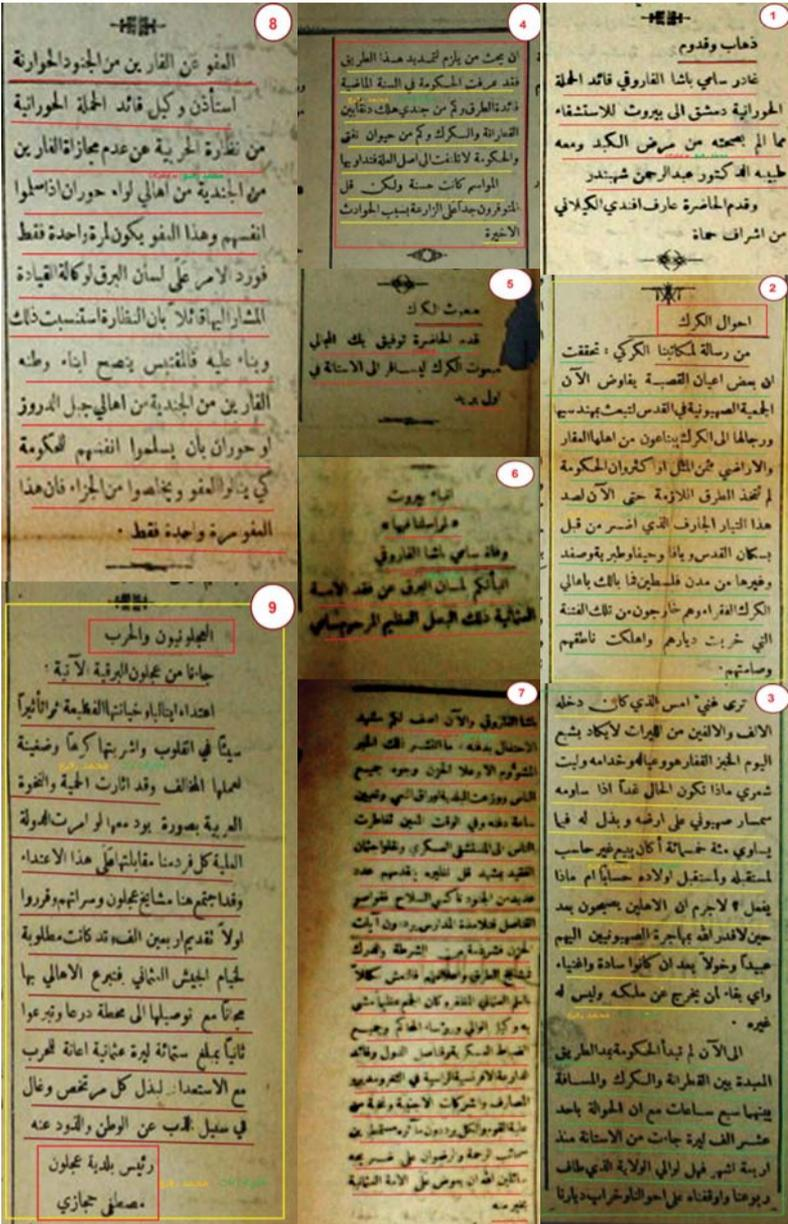 1
ذهاب وقدوم
غادر سامي باشا الفاروقي قائد الحملة
الحورانية دمشق الى بيروت للاستشفاء
مما الم بصحته من مرض الكبد ومعه
طبيبه الدكتور عبدالرحمن شهبندر
وقدم الحاضرة عارف افندي الكيلاني
من اشراف حماة
2
احوال الكرك
من رسالة لمكاتبنا الكركي : تحققت
ان بعض اعيان القصبة يفاوض الآن
الجمعية الصهيونية في القدس لتبعث بمهندسيها
ورجالها الى الكرك يبتاعون من اهلها العقار
والاراضي بثمن المثل او اكثر وان الحكومة
لم تتخذ الطرق اللازمة حتى الآن لصد
هذا التيار الجارف الذي اضر من قبل
بسكان القدس ويافا وحيفا وطبرية وصفد
وغيرها من مدن فلسطين فما بالك باهالي
الكرك الفقراء وهم خارجون من تلك الفتنة
التي خربت ديارهم واهلكت ناطقهم
وصامتهم .
3
ترى غني امس الذي كان دخله
الالف والالفين من الليرات لايكاد يشبع
اليوم الخبز القفار هو وعياله وخدامه وليت
شعري ماذا تكون الحال غداً اذا ساومه
سمسار صهيوني على ارضه و بذل له فيما
يساوي مئة خمسمائة أكان يبيع غير حاسب
لمستقبله ولمستقبل اولاده حساباً ام ماذا
يفعل ؟ لاجرم ان الاهلين يصبحون بعد
حين لاقدر الله بمهاجرة الصهيونيين اليهم
عبيداً وخولاً بعد ان كانوا سادة واغنياء
واي بقاء لمن يخرج عن ملكه وليس له
غيره .
الى الآن لم تبدأ الحكومة بمد الطريق
المعبدة بين القطرانة والكرك والمسافة
بينهما سبع ساعات مع ان الحوالة باحد
عشر الف ليرة جاءت من الاستانة منذ
اربعة اشهر فهل لوالي الولاية الذي طاف
ربوعنا واوقفناه على احوالنا وخراب ديارنا
4
ان يحث من يلزم لتمديد هذا الطريق
فقد عرفت الحكومة في السنة الماضية
فائدة الطرق وكم من جندي هلك
القطرانة والكرك وكم من حيوان نفق
والحكومة لاتلتفت الى اصل العلة فتداويها
المواسم كانت حسنة ولكن قل
المتوفرون جداً على الزارعة بسبب الحوادث
الاخيرة
5
مبعوث الكرك
قدم الحاضرة توفيق بك المجالي
مبعوث الكرك ليسافر الى الاستانة في
اول بريد
6
انباء بيروت
« لمراسلنا فيها »
وفاة سامي باشا الفاروقي
انبأتكم بلسان البرق عن فقد الامة
العثمانية ذلك البطل العظيم المرحوم سامي
7
باشا الفاروقي والآن اصف لكم مشهد
الاحتفال بدفنه : ما انتشر ذلك الخبر
المشؤوم الا وعلا الحزن وجوه جميع
الناس ووزعت البلدية اوراق النعي وتعيين
ساعة دفنه وفي الوقت المعين تقاطرت
الناس الى المستشفى العسكري ونقلوا جثمان
الفقيد بمشهد قل نظيره يتقدمهم عدد
عديد من الجنود السلاح
فتلامذة المدارس يرددون آيات
الحزن الشرطة والدرك
بالعلم العثماني المظفر وكان الجمع عظيماً مشى
به وكيل الوالي ورؤساء المحاكم وجميع
الضباط العسكرية وقناصل الدول وقائد
الدارعة الافرنسية الراسية في الثغر ومديرو
المصارف والشركات الاجنبية ونخبة من
علية القوم والكل يرددون مآثره
سحائب الرحمة والرضوان على
سائلين الله ان يعوض على الامة العثمانية
بخير منه
8
العفو عن الفارين من الجنود الحوارنة
استأذن وكيل قائد الحملة الحورانية
من نظارة الحربية عن عدم مجازاة الفارين
من الجندية من اهالي لواء حوران اذا سلموا
انفسهم وهذا العفو يكون لمرة واحدة فقط
فورد الامر على لسان البرق لوكالة القيادة
المشار اليها قائلاً بان النظارة استنسبت ذلك
وبناء عليه فالمقتبس ينصح ابناء وطنه
الفارين من الجندية من اهالي جبل الدروز
او حوران بأن يسلموا انفسهم للحكومة
كي ينالوا العفو ويخلصوا من الجزاء فان هذا
العفو مرة واحدة فقط .
9
العجلونيون والحرب
جاءنا من عجلون البرقية الآتية :
اعتداء ايتاليا وخيانتها الفظيعة اثرا تأثيراً
سيئاً في القلوب واشربتها كرهاً وضغينة
لعملها المخالف وقد اثارت الحمية والنخوة
العربية بصورة يود معها لو امرت الدولة
العلية كل فرد منا مقابلتها على هذا الاعتداء
وقد اجتمع هنا مشايخ عجلون وسراتهم وقرروا
اولاً تقديم اربعين الف وتد كانت مطلوبة
لخيام الجيش العثماني فتبرع الاهالي بها
مجاناً مع توصيلها الى محطة درعا وتبرعوا
ثانياً بمبلغ ستمائة ليرة عثمانية اعانة للحرب
مع الاستعداد لبذل كل مرتخص وغال
في سبيل الذب عن الوطن والذود عنه
رئيس بلدية عجلون
مصطفى حجازي